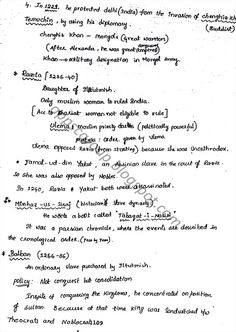 4. In 1221, he protected delhi (India) from the invasion of chenghis kh
Temuchin, by using his diplomacy. (Buddist)
chenghis Khan - mongols (great warriors)
(After Alexander, he was great conqueror)
Khan → military designation in Mongol army.
* Razia [1236-40]
Daughter of Iltutmish.
Only muslim woman to ruled India.
[Acc to shariat woman not eligible to rule]
Ulema: muslim priestly class (politically powerful)
order given by ulema
Ulema opposed Razia (from starting) because she was Unorthrodox.
* Jamal-ud-din Yakut, an Abysinian slave in the court of Razia
So she was also opposed by Nobles.
In 1240, Razia & Yakut both were assassinated.
* Minhaz-us-Siraj (historian of slave dynasty)
He wrote a book called "Tabaqat-i-Nasiri"
It was a persian chronicle, where the events are described in
the cronological order. (Year by Year)
* Balban (1266-86)
An ordinary slave purchased by Iltutmish.
policy: Not conquest but consolidation
Inspite of conquering the kingdoms, he concentrated on position
of Sultan. Because at that time king was sandwitched b/w
Theocrats and Nobles